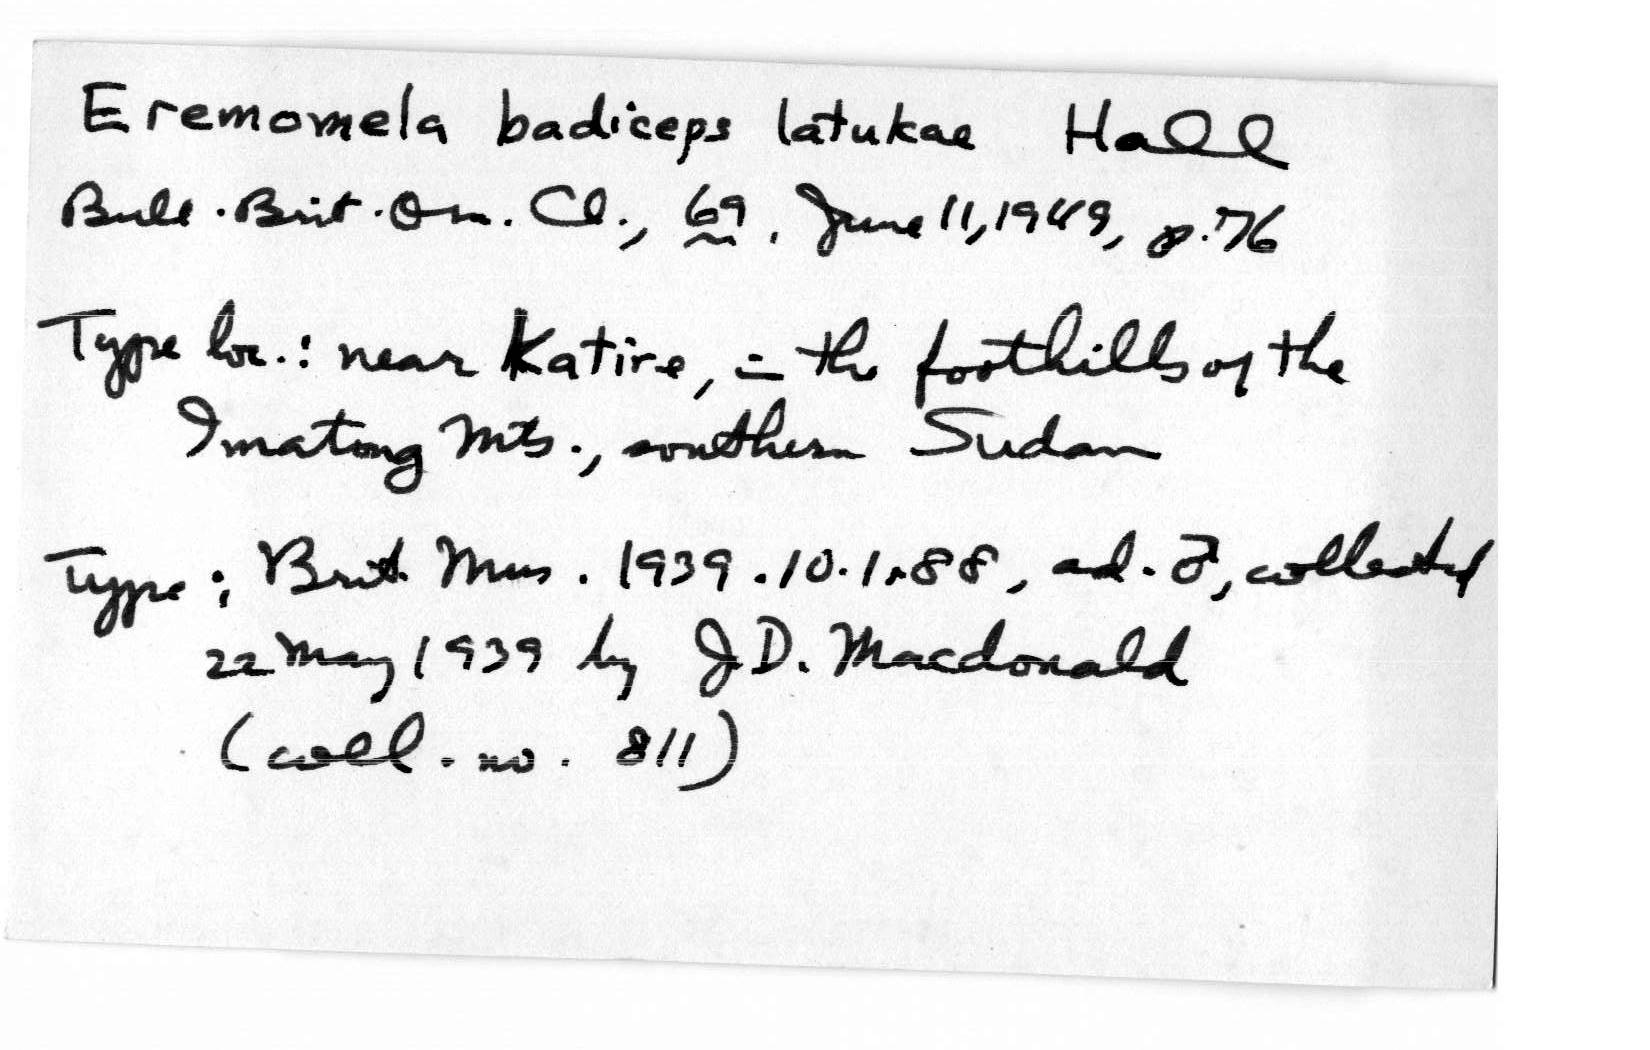 Eremomela badiceps latukae Hall
Bull. Brit. Orn. Cl., 69, June 11, 1949, p. 76
Type loc.: near Katire, in the foothills of the
Imatong Mts., southern Sudan
Type: Brit. Mus. 1939.10.1.88, ad. ♂, collected
22 May 1939 by J.D. Macdonald
(coll. no. 811)